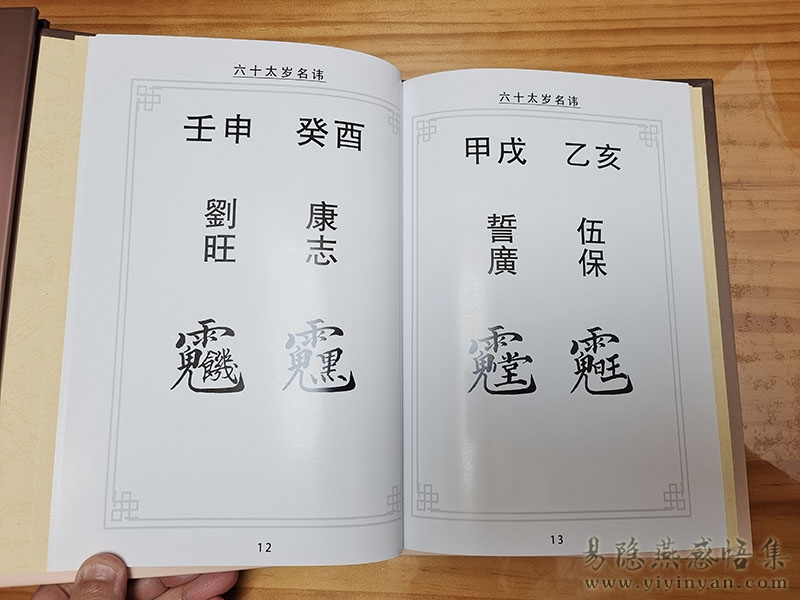 六十太岁名讳
壬申 癸酉
劉旺 康志
12
六十太岁名讳
甲戌 乙亥
誓廣 伍保
13
易隐燕感悟集
www.yiyinyan.com